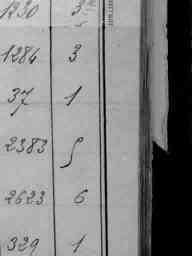 1230 3
1284 3
37 1
2383 5
2623 6
329 1